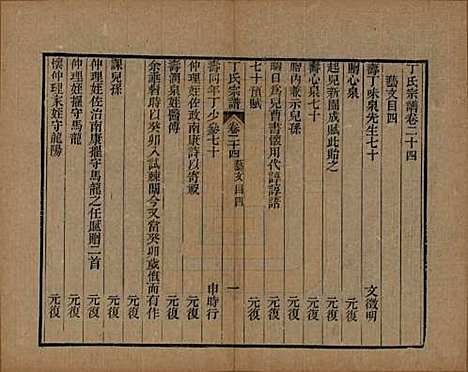 丁氏宗譜卷二十四
藝文目四
壽丁味泉先生七十 文徵明
贈心泉 元復
起兒新園成賦此貽之 元復
壽心泉七十 元復
晦內兼示兒孫 元復
晦日為兒曹書懷用代諄諄語 元復
七十預賦 元復
丁氏宗譜 卷二十四 藝文目四 一
壽同年丁少參七十 申時行
仲理姪佐政南康詩以寄試 元復
壽澗泉姪醫傳 元復
余誕有時以癸卯入試棘闈今又當癸卯歲愴而有作 元復
課兒孫 元復
仲理姪佐治南康擢守馬龍之任賦贈二首 元復
懷仲理末姪守龍陽 元復